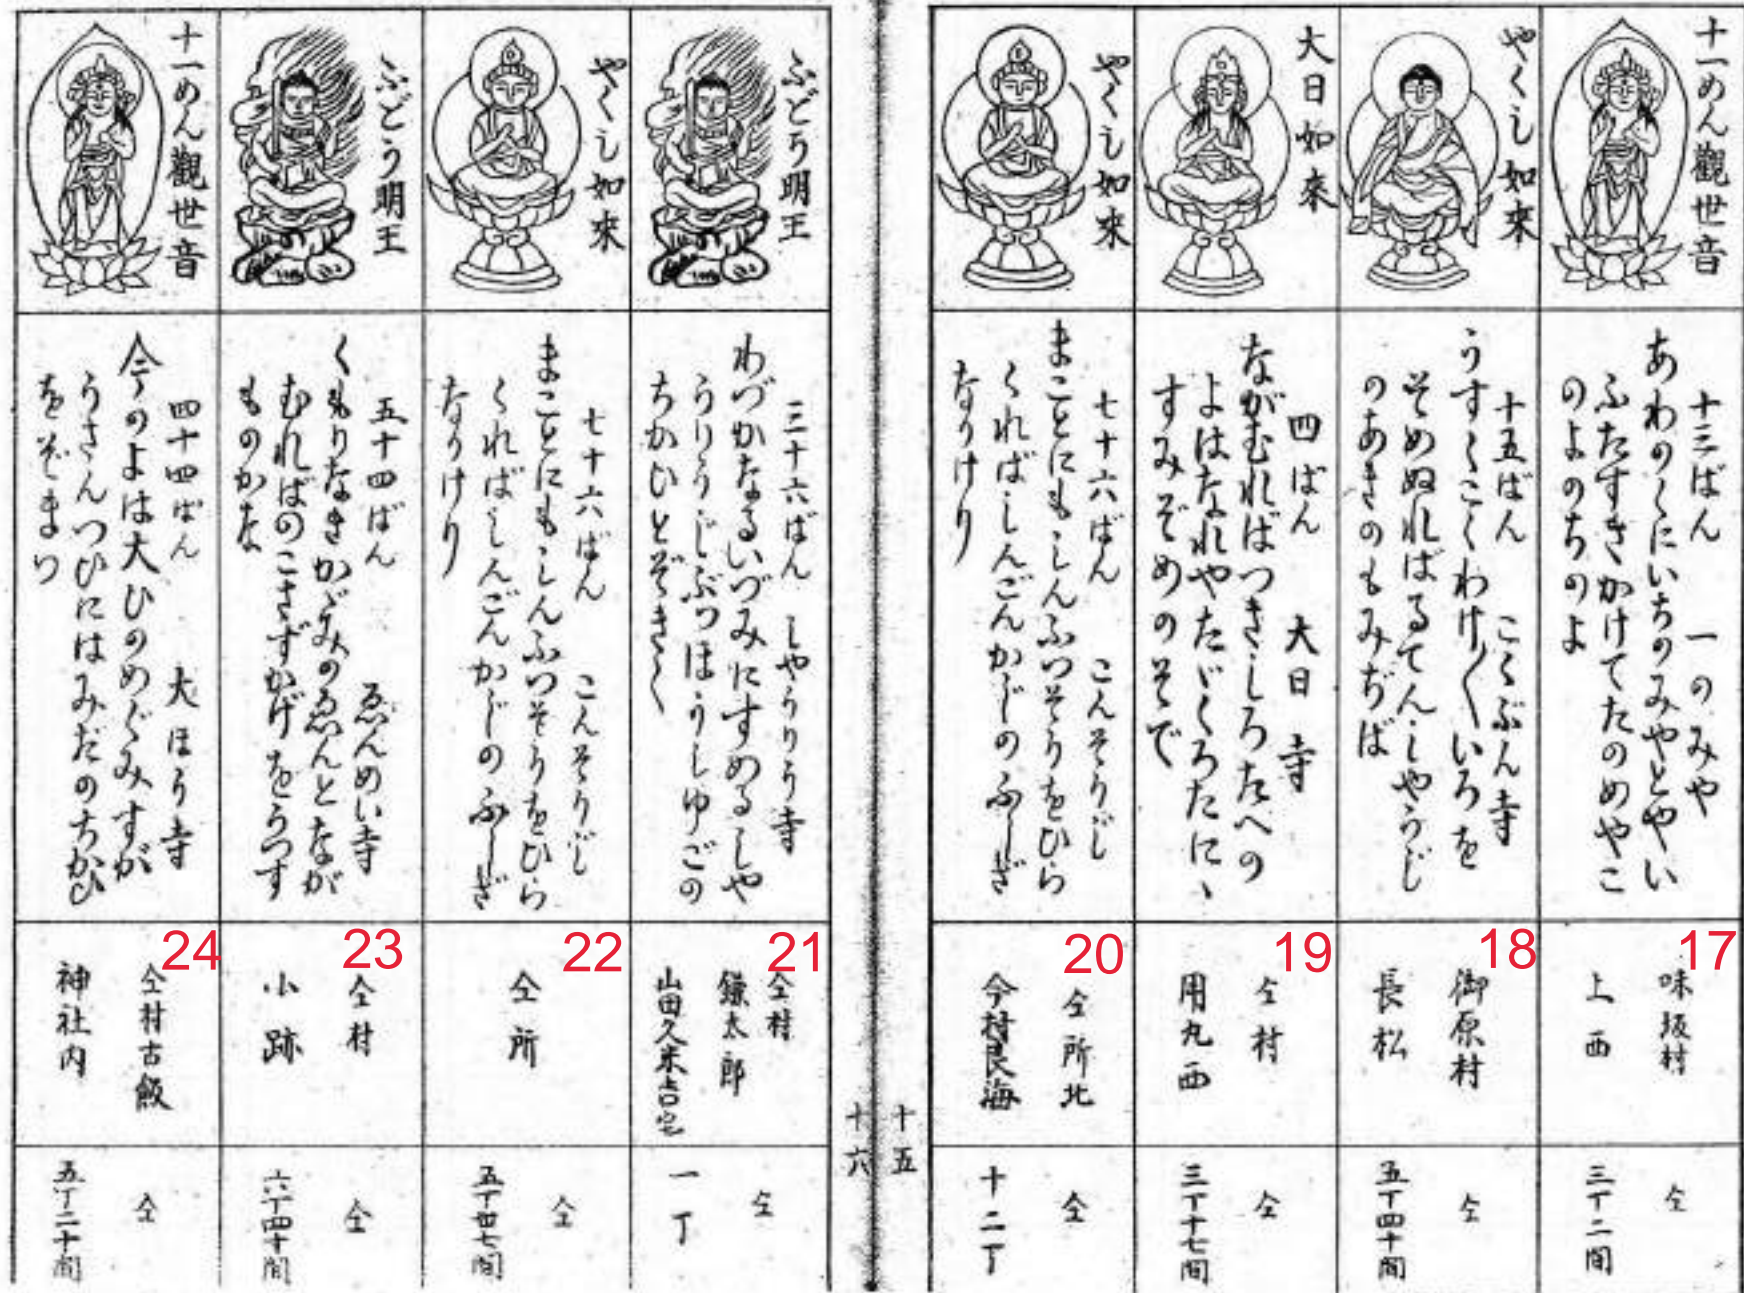 十一めん觀世音
十三ばん 一のみや
あわのくにいちのみやとやい
ふたすきかけてたのめやこ
のよのちのよ
17
味坂村
上西
仝
三丁二間
やくし如來
十五ばん こくぶん寺
うすくこくわけ〳〵いろを
そめぬればるてんしやうじ
のあきのもみぢば
18
御原村
長松
仝
五丁四十間
大日如來
四ばん 大日寺
ながむればつきしろたへの
よはなれやたゞくろたにゝ
すみぞめのそで
19
仝村
用丸西
仝
三丁十七間
やくし如來
七十六ばん こんぞうじ
まことにもしんふつそうをひら
くればしんごんかじのふしぎ
なりけり
20
仝所北
今村良海
仝
十二丁
十五
十六
ふどう明王
三十六ばん しやうりう寺
わづかなるいづみにすめるしや
うりうじぶつほうしゆごの
ちかひとぞきく
21
仝村
鎌太郎
山田久米吉宅
仝
一丁
やくし如來
七十六ばん こんぞうじ
まことにもしんふつそうをひら
くればしんごんかじのふしぎ
なりけり
22
仝所
仝
五丁廿七間
ふどう明王
五十四ばん ゑんめい寺
くもりなきかゞみのゑんとなが
むればのこさずかげをうつす
ものかな
23
仝村
小跡
仝
六丁四十間
十一めん觀世音
四十四ばん 大ほう寺
今のよは大ひのめぐみすが
うさんつひにはみだのちかひ
をぞまつ
24
仝村古飯
神社内
仝
五丁二十間